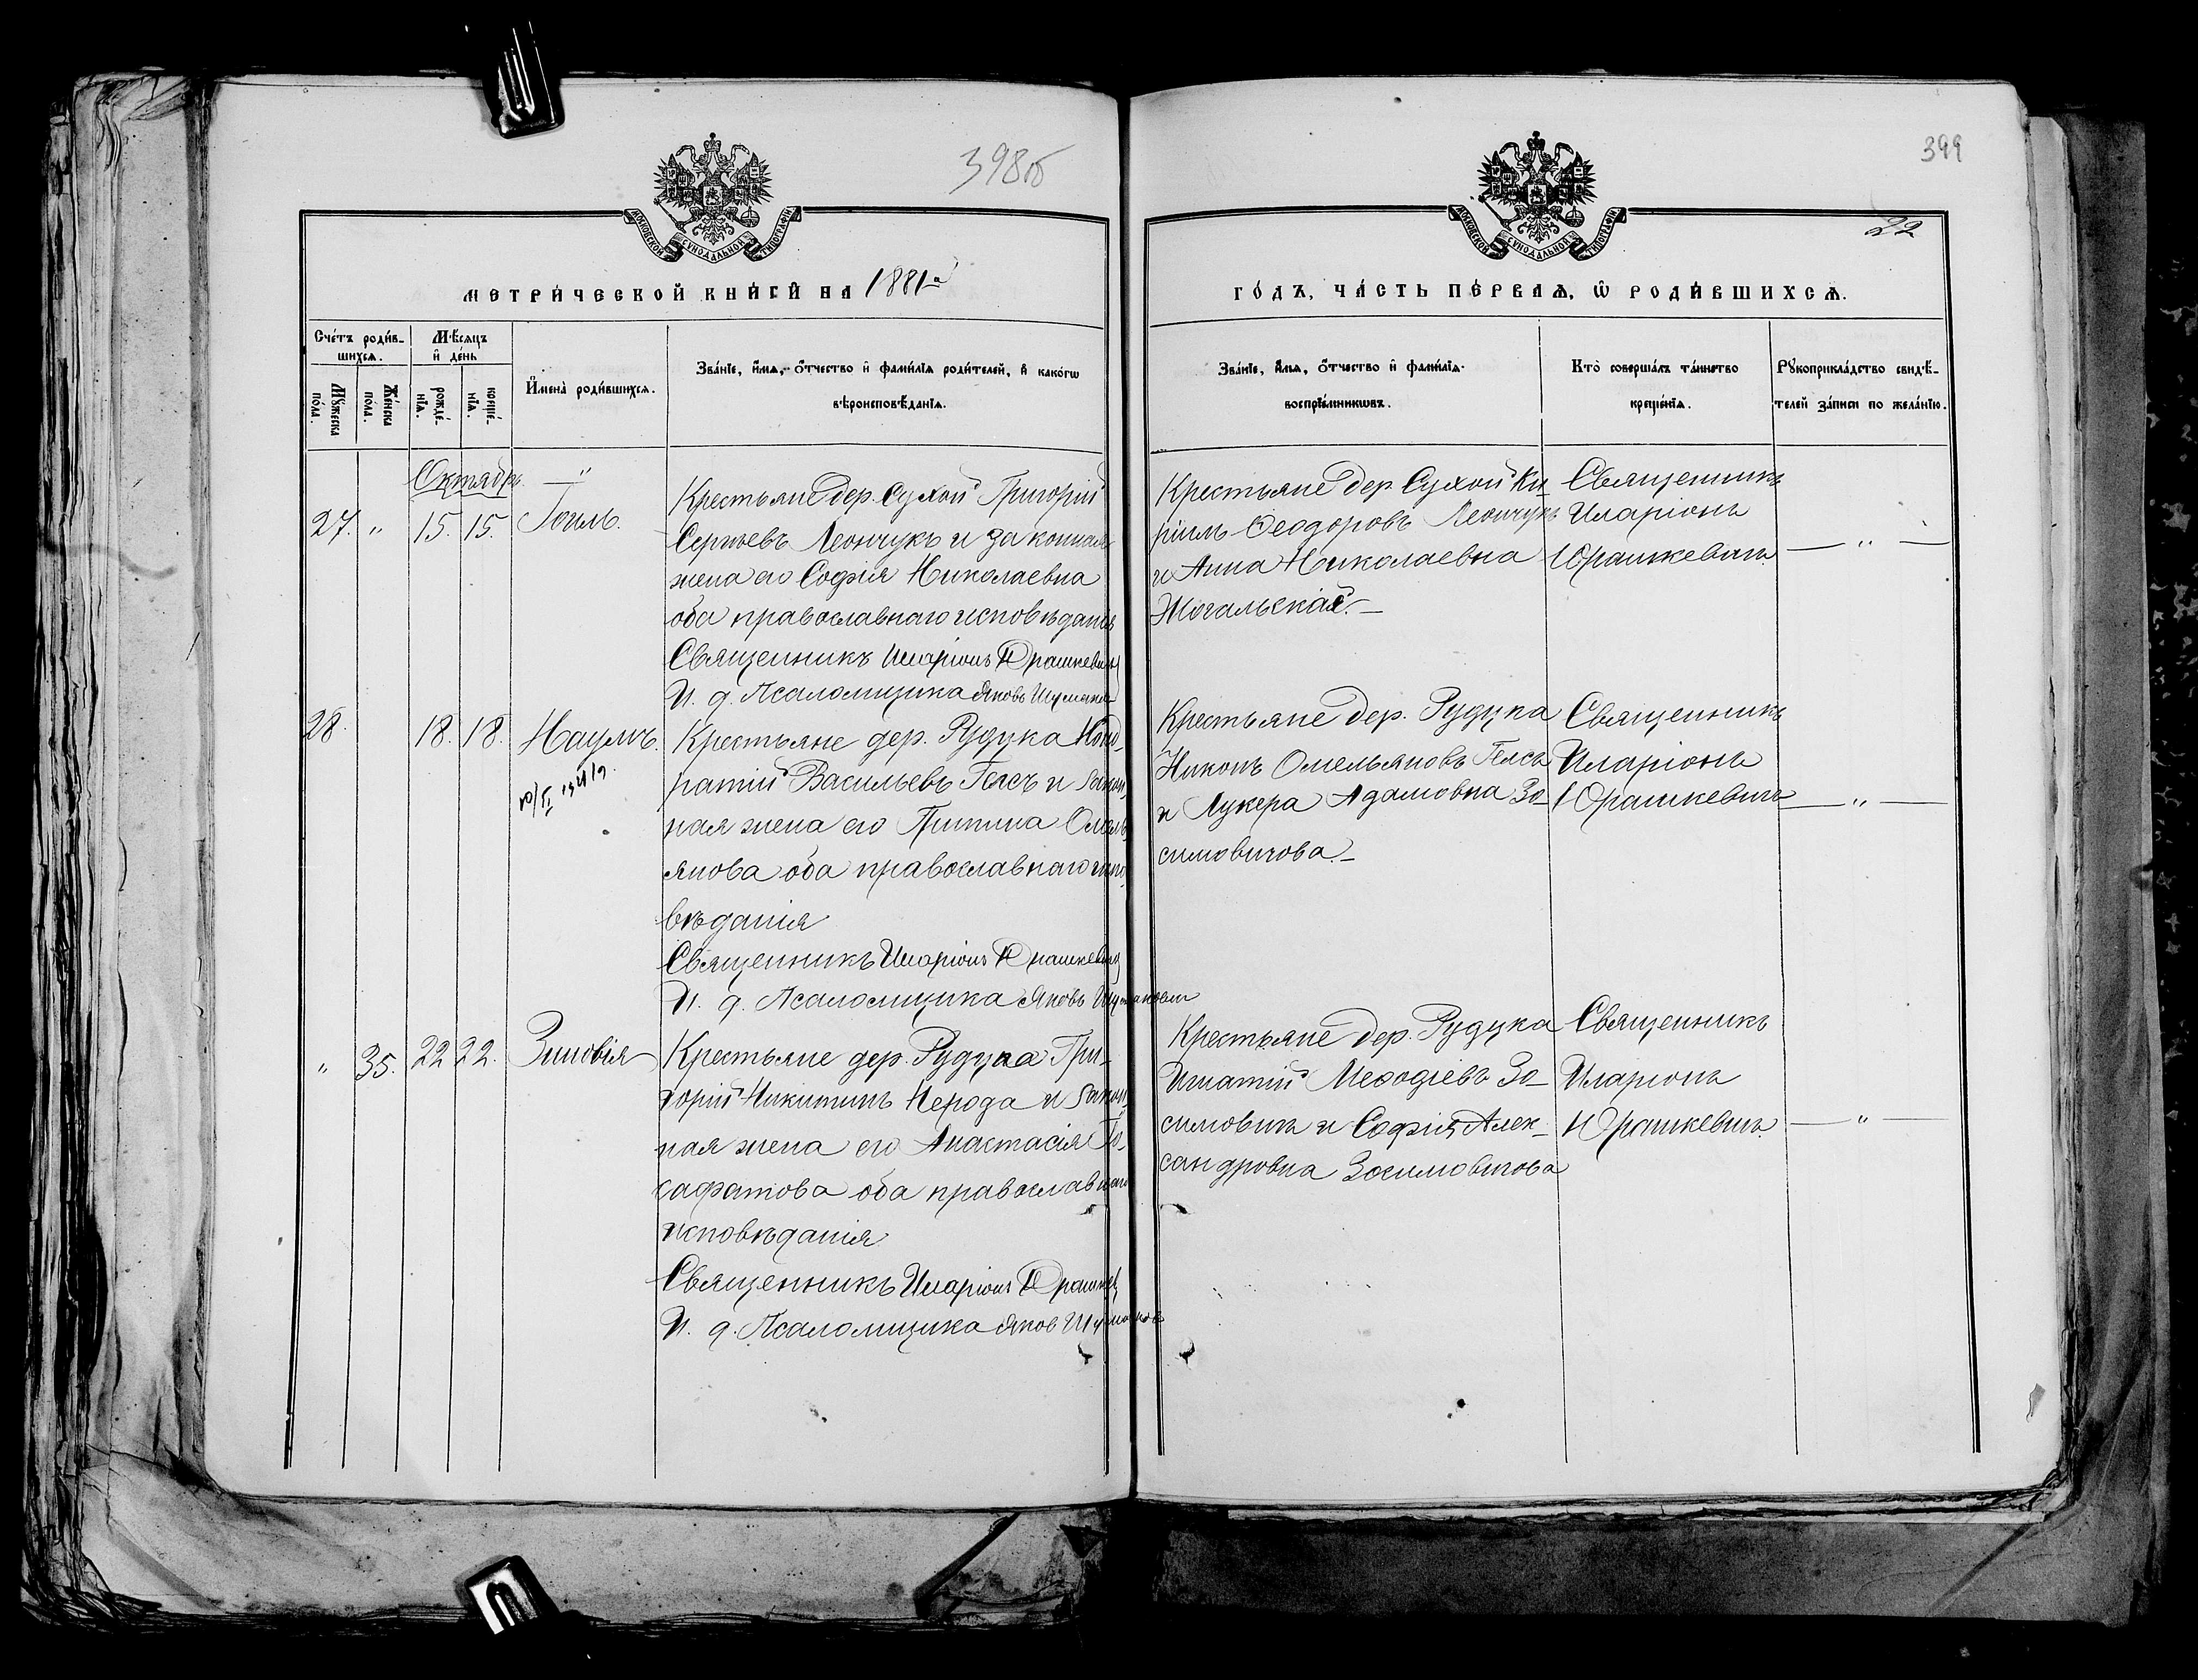 398об
399
22
МОСКОВСКОЙ СУНОДАЛЬНОЙ ТИПОГРАФІИ
МОСКОВСКОЙ СУНОДАЛЬНОЙ ТИПОГРАФІИ
МЕТРИ́ЧЕСКОЙ КНИ́ГИ НА 1881й
ГО́ДЪ, ЧА́СТЬ ПЕ́РВАѦ, Ѡ҆ РОДИ́ВШИХСѦ.
Сче́тъ роди́в-
шихсѧ.
Мѣ́сяцъ
и҆ де́нь
Мꙋ́жеска
по́ла.
Же́нска
по́ла.
рожде́-
нїѧ.
креще́-
нїѧ.
И҆мена̀ роди́вшихсѧ.
Зва́нїе, и҆́мѧ, ѻ҆́тчество и҆ фами́лїѧ роди́телей, и҆ како́гѡ
вѣроисповѣ́данїѧ.
Зва́нїе, и҆́мѧ, ѻ҆́тчество и҆ фами́лїѧ
воспрїе́мникѡвъ.
Кто̀ соверша́лъ та́инство
креще́нїѧ.
Рꙋкоприкла́дство свидѣ́-
телей за́писи по жела́нїю.
Октябрь
27. " 15. 15. Іоиль.
Крестьяне дер. Сухой Григорій
Сергѣевъ Леончукъ и законная
жена его Софія Николаевна
оба православнаго исповѣданія
Священникъ Иларіонъ Юрашкевичъ
И. д. Псаломщика Яковъ
Крестьяне дер. Сухой Ки-
рилъ Ѳеодоровъ Леончукъ
и Анна Николаевна
Жогальская.
Священникъ
Иларіонъ
Юрашкевичъ.
— " —
28. 18. 18. Наумъ.
Крестьяне дер. Рудука
Васильевъ Гелсъ и закон-
ная жена его Омель-
янова оба православнаго испо-
вѣданія
Священникъ Иларіонъ Юрашкевичъ
И. д. Псаломщика Яковъ
Крестьяне дер. Рудука
Никонъ Омельяновъ Гелсъ
и Лукера Адамовна Зо-
симовичова.
Священникъ
Иларіонъ
Юрашкевичъ
— " —
" 35. 22 22. Зиновія
Крестьяне дер. Рудука Гри-
горій Никитинъ Нерода и закон-
ная жена его Анастасія Іо-
сафатова оба православнаго
исповѣданія
Священникъ Иларіонъ Юрашкев
И. д. Псаломщика Яков
Крестьяне дер. Рудука
Игнатій Меѳодіевъ Зо-
симовичъ и Софія Алек-
сандровна Зосимовичова
Священникъ
Иларіонъ
Юрашкевичъ.
— " —